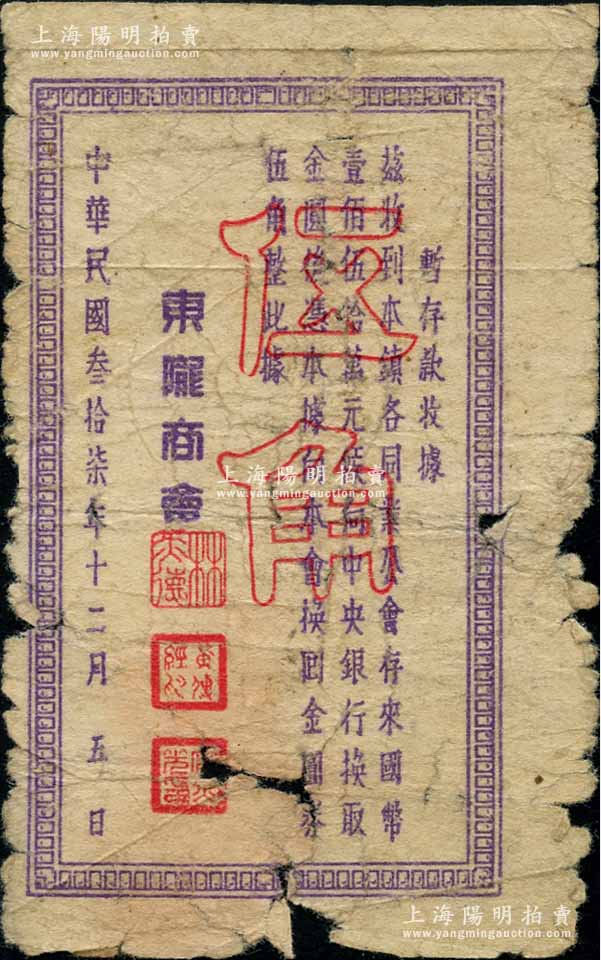 上海陽明拍賣
www.yangmingauction.com
上海陽明拍賣
www.yangmingauction.com
暫存款收據
茲收到本鎮各同業公會存來國幣
壹佰伍拾萬元候向中央銀行換取
金圓後憑本據向本會換回金圓券
伍角整此據
伍角
東隴商會
中華民國叁拾柒年十二月五日
上海陽明拍賣
www.yangmingauction.com
上海陽明拍賣
www.yangmingauction.com